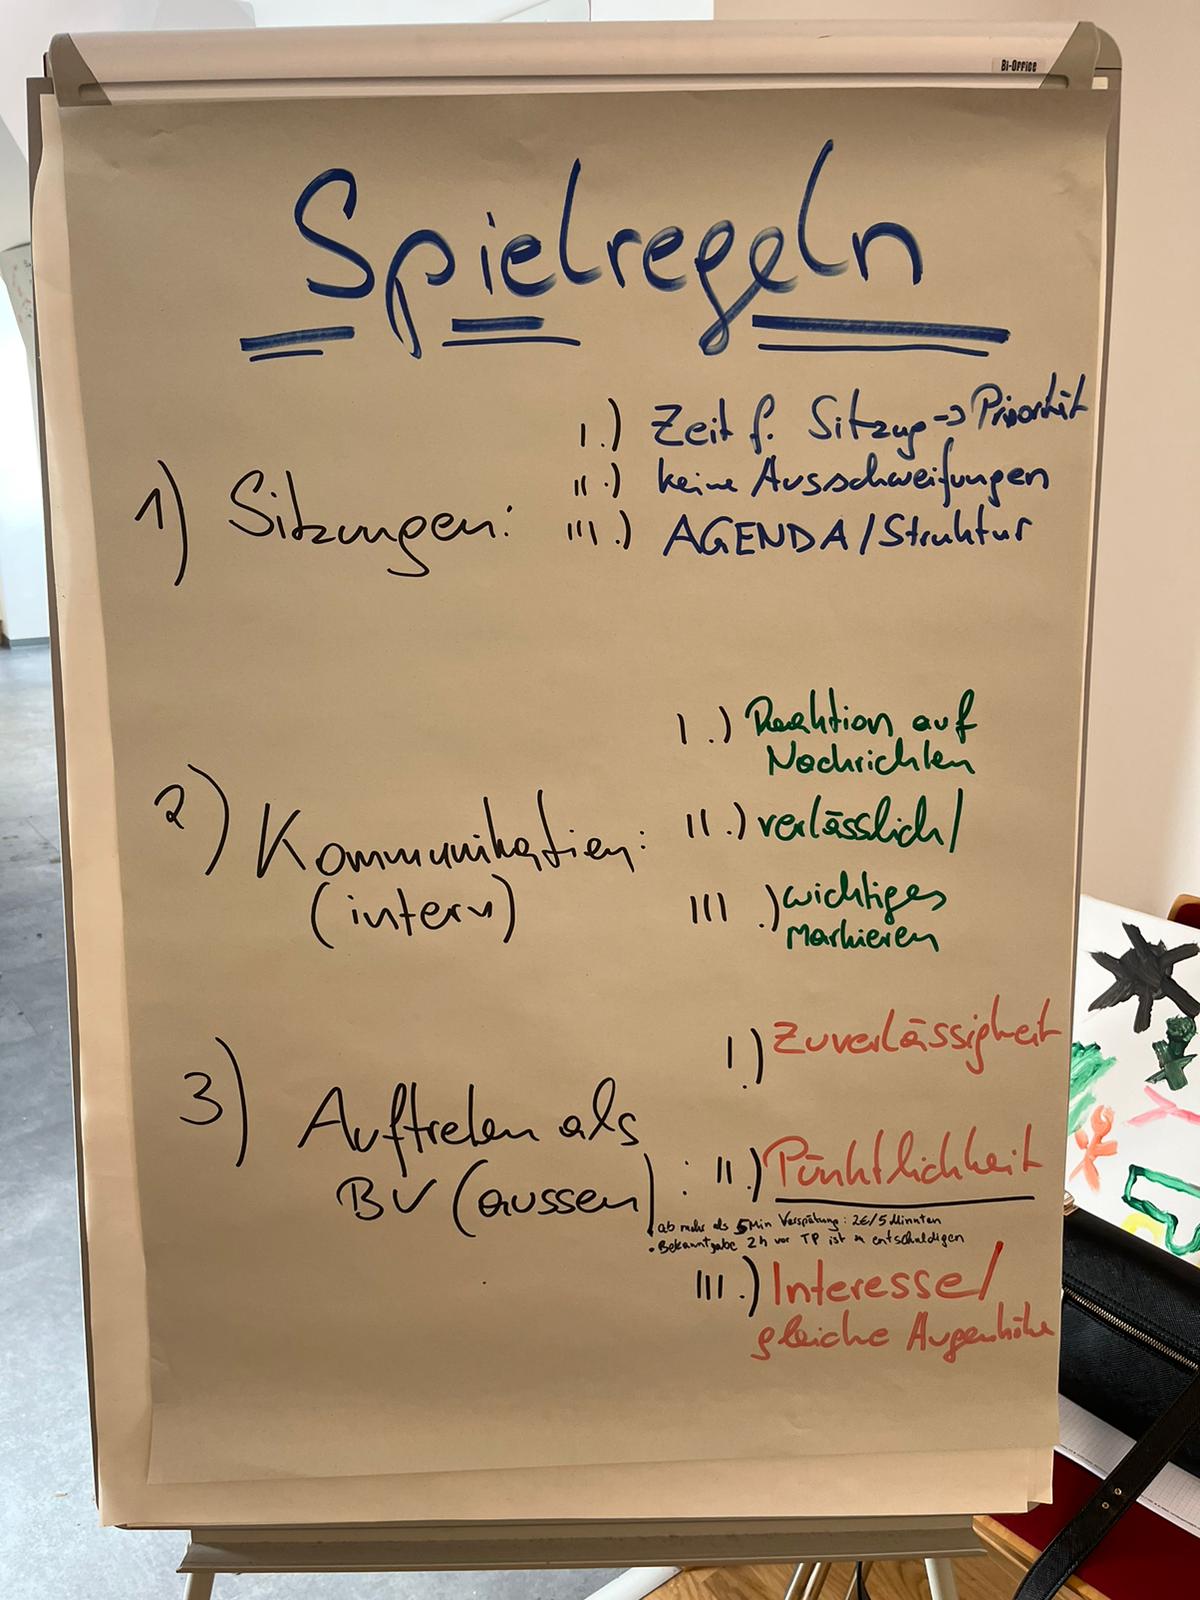 Bi-Office
Spielregeln
1) Sitzungen:
I.) Zeit f. Sitzung -> Priorität
II.) keine Ausschweifungen
III.) AGENDA/Struktur
2) Kommunikation:
(intern)
I.) Reaktion auf
Nachrichten
II.) verlässlich/
III.) wichtiges
markieren
3) Auftreten als
BV (aussen):
I.) Zuverlässigkeit
II.) Pünktlichkeit
• ab mehr als 5 Min Verspätung: 2€/5 Minuten
• Bekanntgabe 2h vor TP ist zu entschuldigen
III.) Interesse/
gleiche Augenhöhe